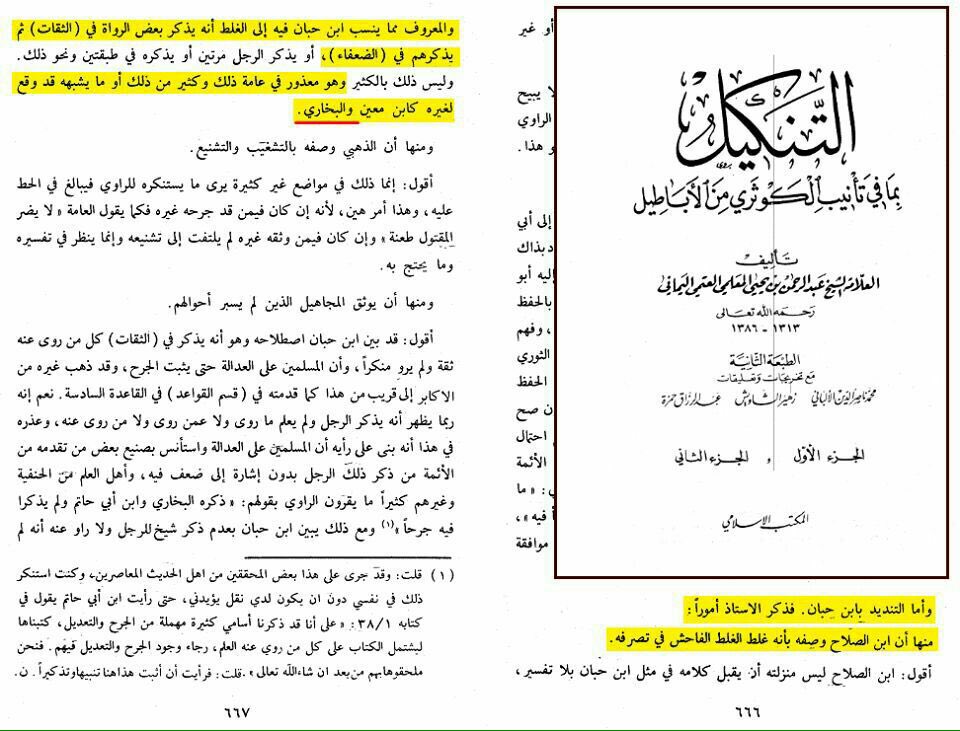 التنكيل
بما في تأنيب الكوثري من الأباطيل
تأليف
العلامة الشيخ عبد الرحمن بن يحيى المعلمي العتمي اليماني
رحمه الله تعالى
١٣١٣ - ١٣٨٦
الطبعة الثانية
مع تخريجات وتعليقات
محمد ناصر الدين الألباني زهير الشاويش عبد الرزاق حمزة
الجزء الأول و الجزء الثاني
المكتب الإسلامي
أو غير
لا يبيح
الراوي
و هذا .
إلى أبي
د بذاك
إليه أبو
بالحفظ
، وفهم
الثوري
الحفظ
ن صح
احتمال
الأئمة
ي : « ما
أ فيه » ،
موافقة
وأما التنديد بابن حبان. فذكر الاستاذ أموراً :
منها أن ابن الصلاح وصفه بأنه غلط الغلط الفاحش في تصرفه.
أقول: ابن الصلاح ليس منزلته أن يقبل كلامه في مثل ابن حبان بلا تفسير ،
٦٦٦
والمعروف مما ينسب ابن حبان فيه إلى الغلط أنه يذكر بعض الرواة في (الثقات) ثم
يذكرهم في (الضعفاء)، أو يذكر الرجل مرتين أو يذكره في طبقتين ونحو ذلك.
وليس ذلك بالكثير وهو معذور في عامة ذلك وكثير من ذلك أو ما يشبهه قد وقع
لغيره كابن معين والبخاري .
ومنها أن الذهبي وصفه بالتشغيب والتشنيع.
أقول: إنما ذلك في مواضع غير كثيرة يرى ما يستنكره للراوي فيبالغ في الحط
عليه، وهذا أمر هين، لأنه إن كان فيمن قد جرحه غيره فكما يقول العامة « لا يضر
المقتول طعنة » وإن كان فيمن وثقه غيره لم يلتفت إلى تشنيعه وإنما ينظر في تفسيره
وما يحتج به.
ومنها أن يوثق المجاهيل الذين لم يسبر أحوالهم.
أقول: قد بين ابن حبان اصطلاحه وهو أنه يذكر في (الثقات) كل من روى عنه
ثقة ولم يرو منكراً، وأن المسلمين على العدالة حتى يثبت الجرح، وقد ذهب غيره من
الاكابر إلى قريب من هذا كما قدمته في (قسم القواعد) في القاعدة السادسة. نعم إنه
ربما يظهر أنه يذكر الرجل ولم يعلم ما روى ولا عمن روى ولا من روى عنه، وعذره
في هذا أنه بنى على رأيه أن المسلمين على العدالة واستأنس بصنيع بعض من تقدمه من
الأئمة من ذكر ذلك الرجل بدون إشارة إلى ضعف فيه، وأهل العلم من الحنفية
وغيرهم كثيراً ما يقوون الراوي بقولهم: «ذكره البخاري وابن أبي حاتم ولم يذكرا
فيه جرحاً» (١) ومع ذلك يبين ابن حبان بعدم ذكر شيخ للرجل ولا راو عنه أنه لم
(١) قلت: وقد جرى على هذا بعض المحققين من اهل الحديث المعاصرين، وكنت استنكر
ذلك في نفسي دون ان يكون لدي نقل يؤيدني، حتى رأيت ابن أبي حاتم يقول في
كتابه ٣٨/١ : «على أنا قد ذكرنا أسامي كثيرة مهملة من الجرح والتعديل، كتبناها
ليشتمل الكتاب على كل من روي عنه العلم، رجاء وجود الجرح والتعديل فيهم. فنحن
ملحقوها بهم من بعد ان شاء الله تعالى ». قلت: فرأيت أن أثبت هذا هنا تنبيهاً وتذكيراً . ن.
٦٦٧